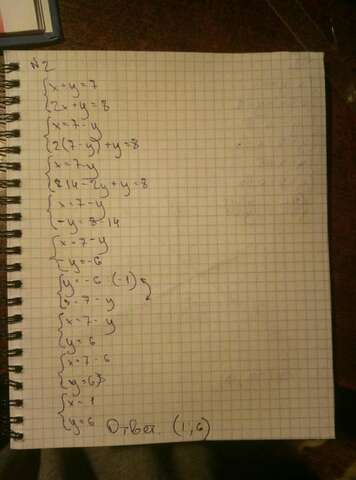 №2
x+y=7
2x+y=8
x=7-y
2(7-y)+y=8
x=7-y
14-2y+y=8
x=7-y
-y=8-14
x=7-y
-y=-6
y=-6·(-1)
x=7-y
x=7-y
y=6
x=7-6
y=6
x=1
y=6 Ответ. (1;6)